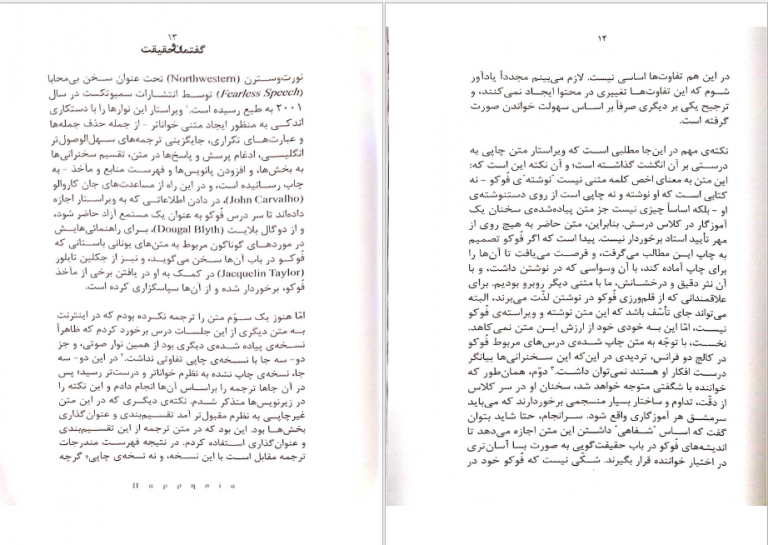 ۱۳
گفتمان و حقیقت
نورت‌وسترن (Northwestern) تحت عنوان سخن بی‌محابا
(Fearless Speech) توسط انتشارات سمیوتکست در سال
۲۰۰۱ به طبع رسیده است.۱ ویراستار این نوارها را با دستکاری
اندکی به منظور ایجاد متنی خواناتر - از جمله حذف جمله‌ها
و عبارت‌های تکراری، جایگزینی ترجمه‌های سهل‌الوصول‌تر
انگلیسی، ادغام پرسش و پاسخ‌ها در متن، تقسیم سخنرانی‌ها
به بخش‌ها، و افزودن پانویس‌ها و فهرست منابع و مآخذ - به
چاپ رسانیده است، و در این راه از مساعدت‌های جان کاروالو
(John Carvalho)، در دادن اطلاعاتی که به ویراستار اجازه
داده‌اند تا سر درس فوکو به عنوان یک مستمع آزاد حاضر شود،
و از دوگال بلایت (Dougal Blyth) برای راهنمائی‌هایش
در موردهای گوناگون مربوط به متن‌های یونانی باستانی که
فوکو در باب آن‌ها سخن می‌گوید، و نیز از جکلین تایلور
(Jacquelin Taylor) در کمک به او در یافتن برخی از مآخذ
فوکو، برخوردار شده و از آن‌ها سپاسگزاری کرده است.
امّا هنوز یک سوّم متن را ترجمه نکرده بودم که در اینترنت
به متن دیگری از این جلسات درس برخورد کردم که ظاهراً
نسخه‌ی پیاده شده‌ی دیگری بود از همین نوار صوتی، و جز
دو- سه جا با نسخه‌ی چاپی تفاوتی نداشت.۲ در این دو- سه
جا، نسخه‌ی چاپ نشده به نظرم خواناتر و درست‌تر رسید؛ پس
در آن جاها ترجمه را براساس آن‌ها انجام دادم و این نکته را
در زیرنویس‌ها متذکر شدم. نکته‌ی دیگری که در این متن
غیرچاپی به نظرم مقبول‌تر آمد تقسیم‌بندی و عنوان‌گذاری
بخش‌ها بود. این بود که در متن ترجمه از این تقسیم‌بندی
و عنوان‌گذاری استفاده کردم. در نتیجه فهرست مندرجات
ترجمه مقابل است با این نسخه، و نه نسخه‌ی چاپی؛ گرچه
Π α ρ ρ η σ ι α
۱۴
در این هم تفاوت‌ها اساسی نیست. لازم می‌بینم مجدداً یادآور
شوم که این تفاوت‌ها تغییری در محتوا ایجاد نمی‌کنند، و
ترجیح یکی بر دیگری صرفاً بر اساس سهولت خواندن صورت
گرفته است.
نکته‌ی مهم در این‌جا مطلبی است که ویراستار متن چاپی به
درستی بر آن انگشت گذاشته است؛ و آن نکته این است که:
این متن به معنای اخص کلمه متنی نیست "نوشته"ی فوکو - نه
کتابی است که او نوشته و نه چاپی است از روی دستنوشته‌ی
او - بلکه اساساً چیزی نیست جز متن پیاده‌شده‌ی سخنان یک
آموزگار در کلاس درسش. بنابراین، متن حاضر به هیچ روی از
مهر تأیید استاد برخوردار نیست. پیدا است که اگر فوکو تصمیم
به چاپ این مطالب می‌گرفت، و فرصت می‌یافت تا آن‌ها را
برای چاپ آماده کند، با آن وسواسی که در نوشتن داشت، و با
آن نثر دقیق و درخشانش، ما با متنی دیگر روبرو بودیم. برای
علاقمندانی که از قلم‌ورزی فوکو در نوشتن لذّت می‌برند، البته
می‌تواند جای تأسّف باشد که این متن نوشته و ویراسته‌ی فوکو
نیست، امّا این به خودی خود از ارزش این متن نمی‌کاهد.
نخست، با توجّه به متن چاپ شده‌ی درس‌های مربوط فوکو
در کالج دو فرانس، تردیدی در این‌که این سخنرانی‌ها بیانگر
درست افکار او هستند نمی‌توان داشت.۳ دوّم، همان‌طور که
خواننده با شگفتی متوجه خواهد شد، سخنان او در سر کلاس
از دقّت، تداوم و ساختار بسیار منسجمی برخوردارند که می‌باید
سرمشق هر آموزگاری واقع شود. سرانجام، حتا شاید بتوان
گفت که اساس "شفاهی" داشتن این متن اجازه می‌دهد تا
اندیشه‌های فوکو در باب حقیقت‌گویی به صورت بسا آسان‌تری
در اختیار خواننده قرار بگیرند. شکّی نیست که فوکو خود در